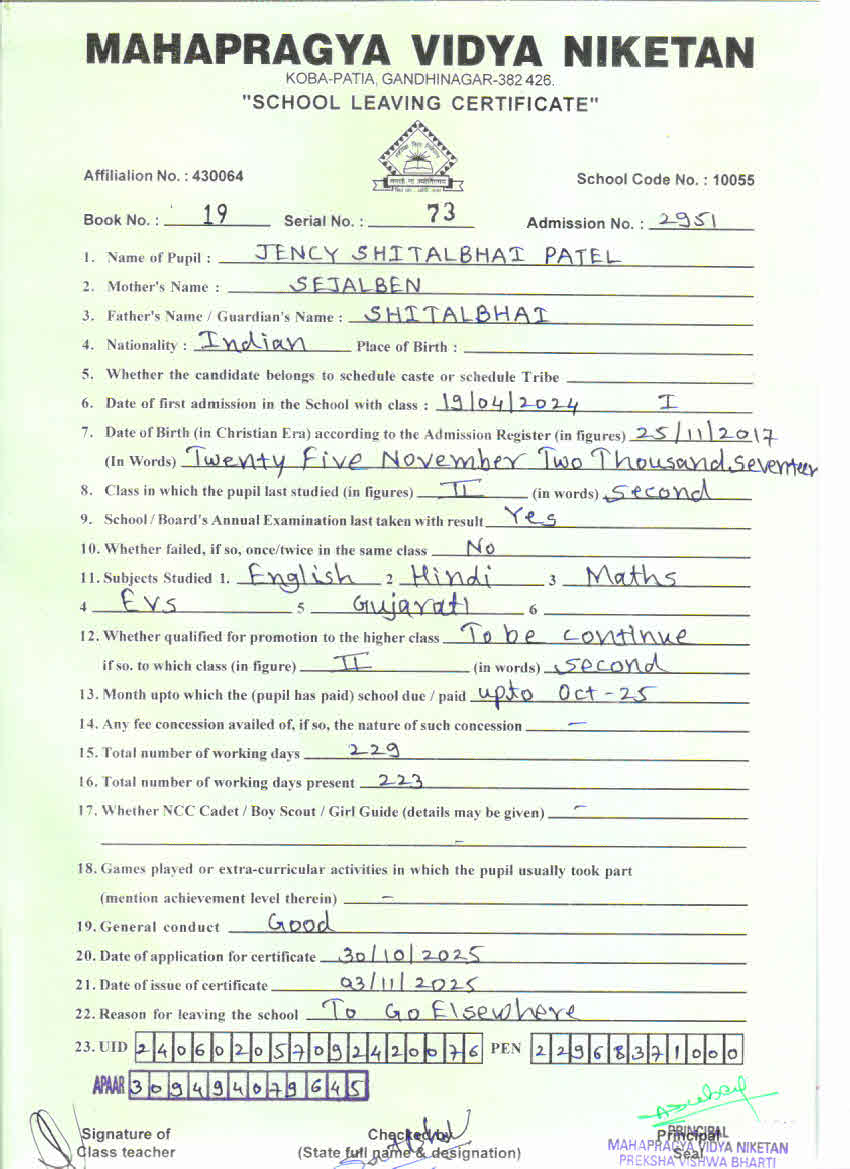 MAHAPRAGYA VIDYA NIKETAN
KOBA-PATIA, GANDHINAGAR-382 426.
"SCHOOL LEAVING CERTIFICATE"
Affilialion No. : 430064
School Code No. : 10055
Book No. : 19 Serial No. : 73 Admission No. : 2951
1. Name of Pupil : JENCY SHITALBHAI PATEL
2. Mother's Name : SEJALBEN
3. Father's Name / Guardian's Name : SHITALBHAI
4. Nationality : Indian Place of Birth :
5. Whether the candidate belongs to schedule caste or schedule Tribe
6. Date of first admission in the School with class : 19/04/2024 I
7. Date of Birth (in Christian Era) according to the Admission Register (in figures) 25/11/2017
(In Words) Twenty Five November Two Thousand, Seventeen
8. Class in which the pupil last studied (in figures) II (in words) second
9. School / Board's Annual Examination last taken with result Yes
10. Whether failed, if so, once/twice in the same class No
11. Subjects Studied 1. English 2 Hindi 3 Maths
4 EVS 5 Gujarati 6
12. Whether qualified for promotion to the higher class To be continue
if so. to which class (in figure) II (in words) second
13. Month upto which the (pupil has paid) school due / paid upto Oct-25
14. Any fee concession availed of, if so, the nature of such concession –
15. Total number of working days 229
16. Total number of working days present 223
17. Whether NCC Cadet / Boy Scout / Girl Guide (details may be given) –
–
18. Games played or extra-curricular activities in which the pupil usually took part
(mention achievement level therein) –
19. General conduct Good
20. Date of application for certificate 30/10/2025
21. Date of issue of certificate 03/11/2025
22. Reason for leaving the school To Go Elsewhere
23. UID 240602057092420076 PEN 22968371000
APAAR 309494079645
Signature of Checked by Principal PRINCIPAL
Class teacher (State full name & designation) Seal MAHAPRAGYA VIDYA NIKETAN
PREKSHA VISHWA BHARTI